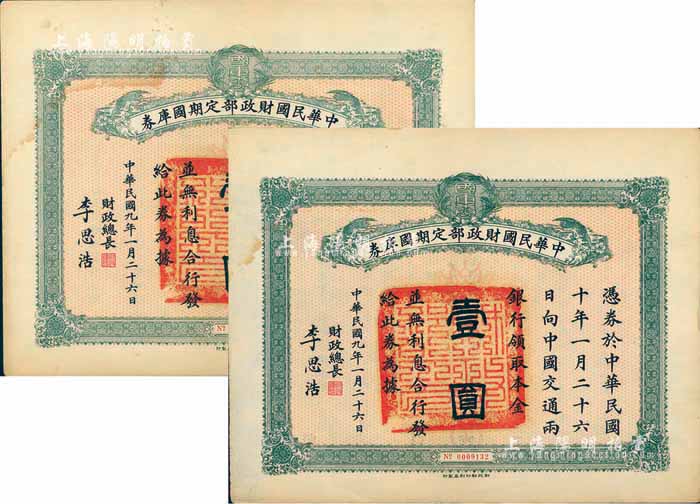 上海陽明拍賣
中華民國財政部定期國庫券
並無利息合行發
給此券為據
中華民國九年一月二十六日
財政總長
李思浩
No
中華民國財政部定期國庫券
憑券於中華民國
十年一月二十六
日向中國交通兩
銀行領取本金
壹圓
並無利息合行發
給此券為據
中華民國九年一月二十六日
財政總長
李思浩
No 0009132
上海陽明拍賣
上海陽明拍賣
財政部印刷局製印